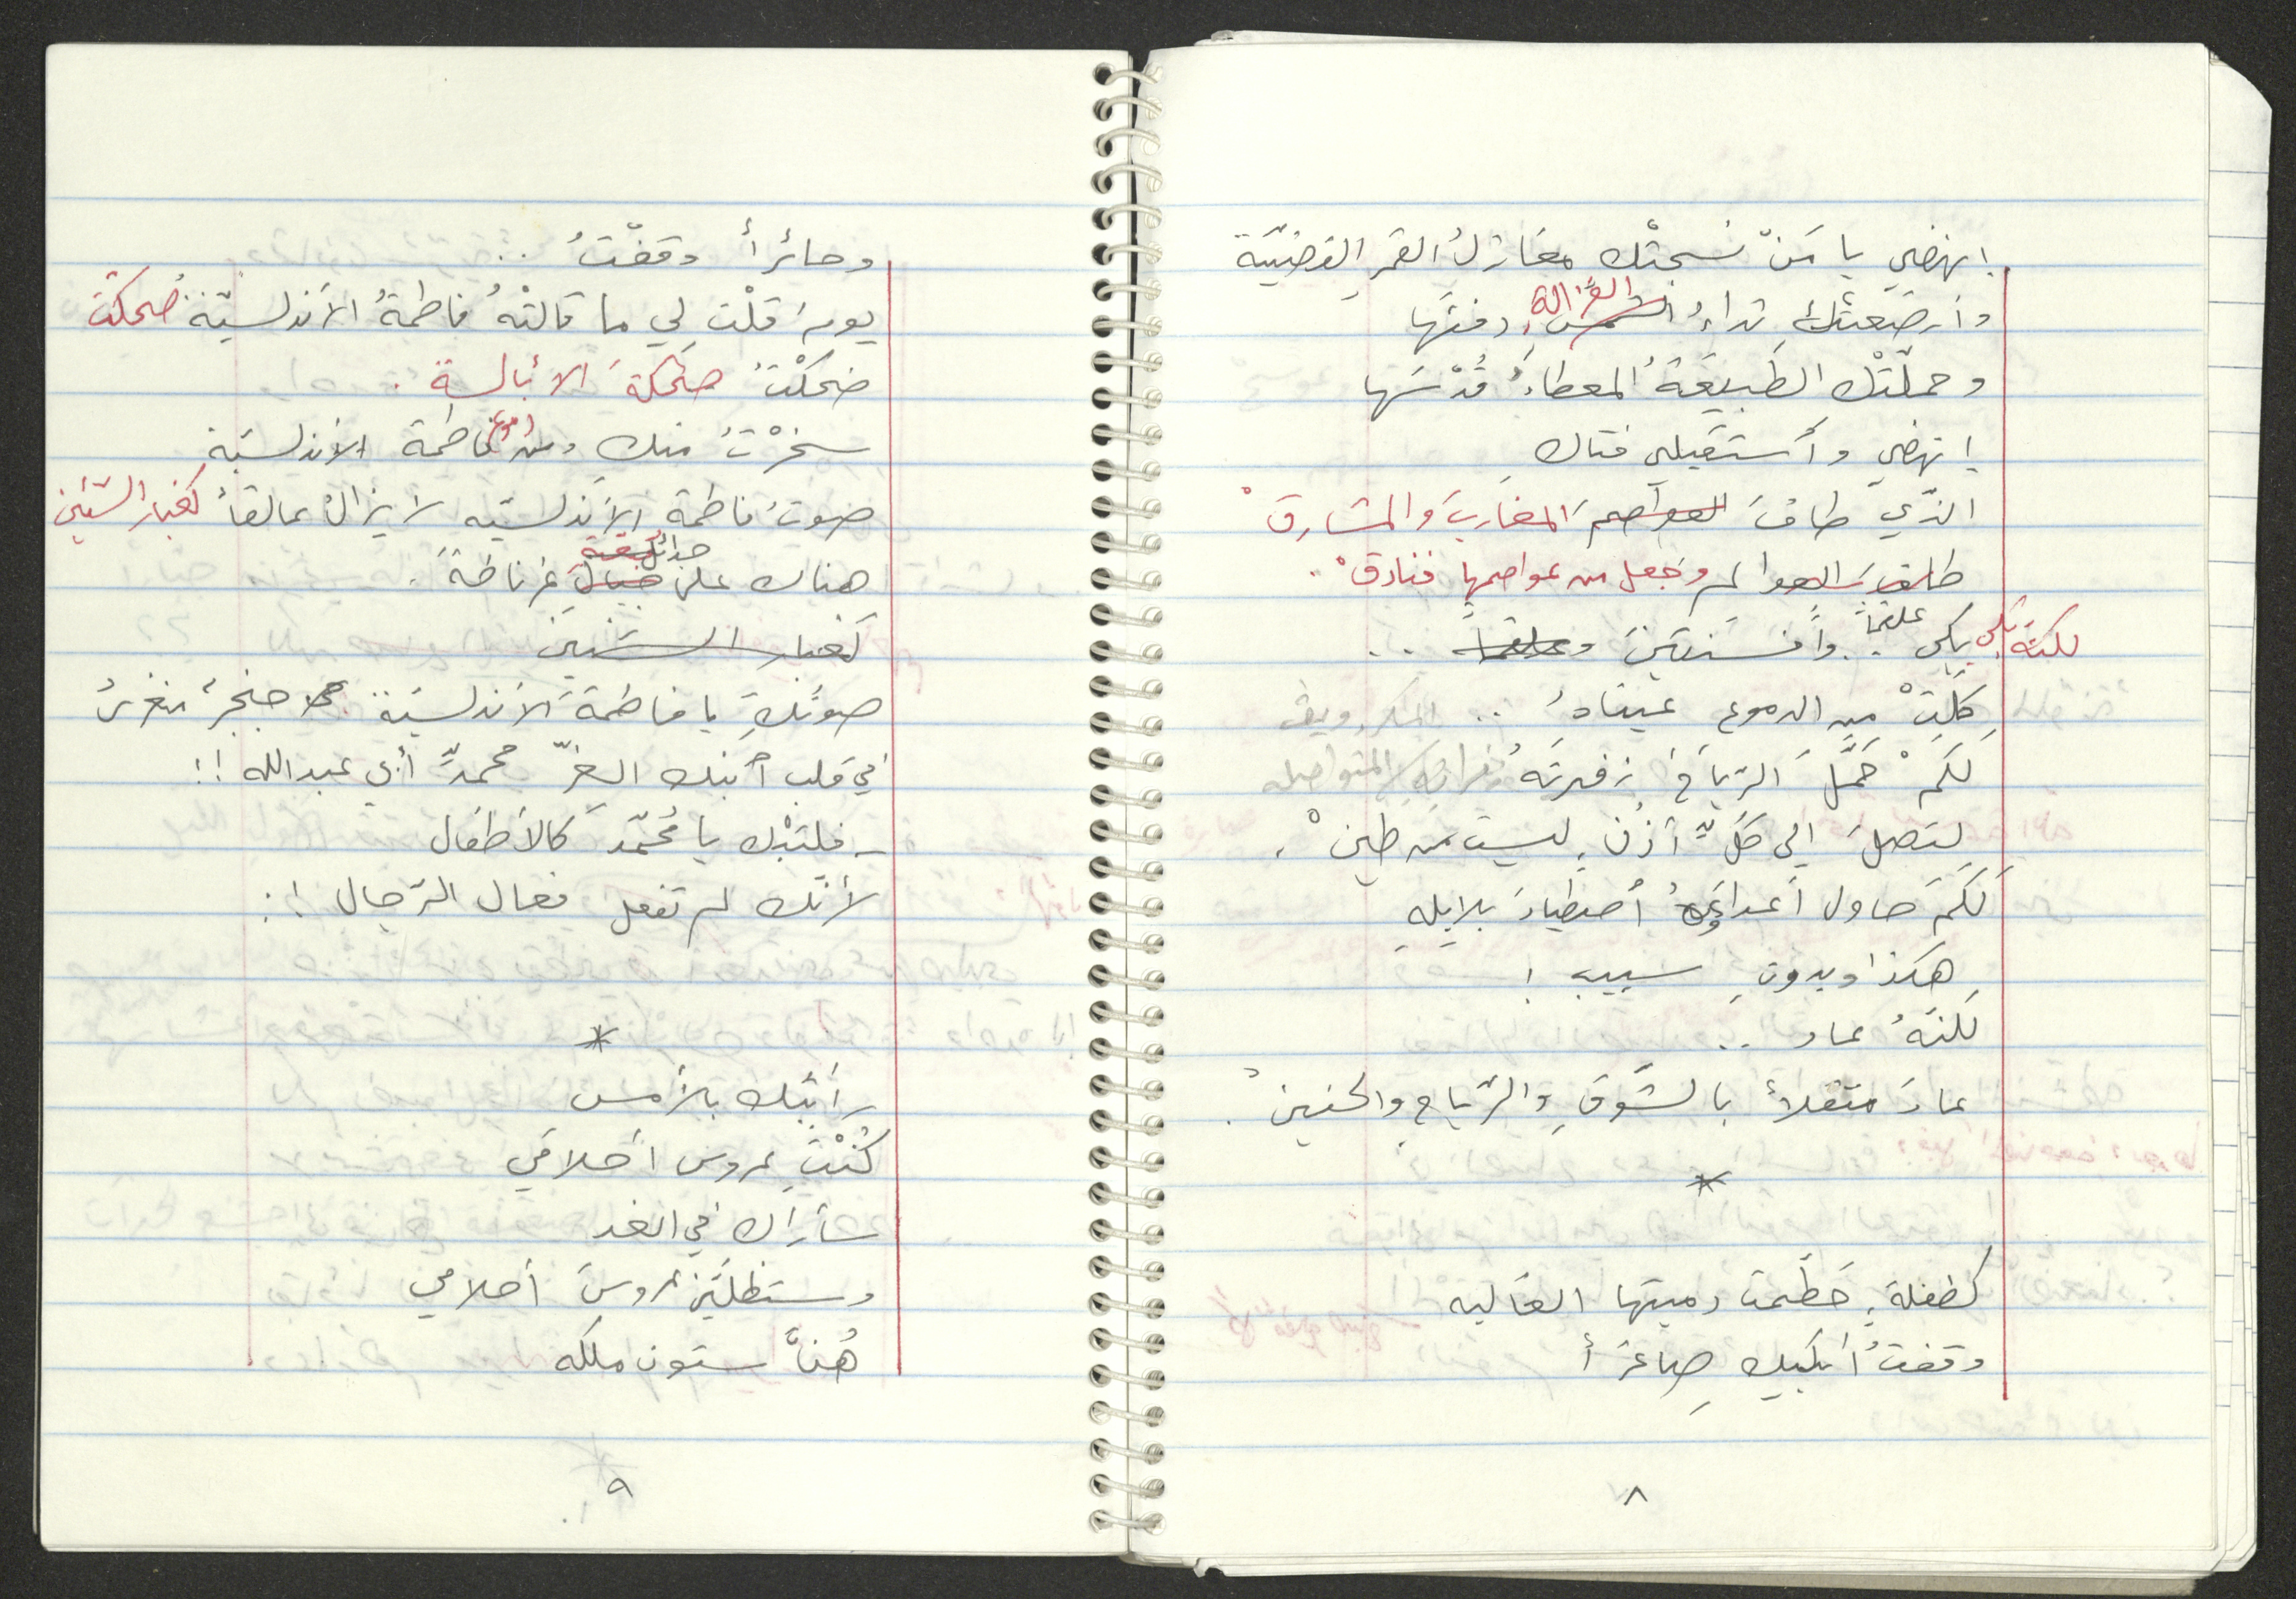 إنهضي يا مَنْ نسجتْك مغازلُ القمرِ الفضيّة
وأرضعتْكِ ثداءُ الشمس الغزالة دفئَها
وحملّتْك الطبيعةُ المعطاءُ قُدْسَها
إنهضي وأستقبلي فتاكِ
الذّي طافَ العواصمَ المغاربَ والمشارقْ
طلقَ العوالم وجعل من عواصمها فنادقْ..
لكنّه بكى يبكي علقماً.. وأفسنتينَ وعلقماً ..
كلّتْ مِن الدموع عيناهُ ..
لكَمْ حمّلَ الرّياحَ زفيرَهُ المتواصله
لتصلَ إلى كلِّ أذنٍ ليست من طينْ .
لَكَمْ حاول أعداؤهُ أصطيادَ بلابلِهِ
هكذا وبدونِ سببٍ !
لكنّهُ عاد ..
عادَ مثقلاً بالشّوقِ والرّياحِ والحنينْ .
*
كطفلةٍ حطّمت دميتها الغاليه
وقفتُ أبكيك صاغراً
٨
وحائراً وقفْتُ ..
يومَ قلْتِ لي ما قالتْهُ فاطمةُ الأندلسيّة.. ضحكْتُ
ضحكْتُ ضحكةَ الأبالسة .
سخرْتُ منك ومن فاطمة الأندلسيّة
صوتُ فاطمة الأندلسيّه لا يزالُ عالقاً كغبار السّنين
هناك على جبال حدائق غرناطةَ .
كغبار السّنين
صوتُكِ يا فاطمةَ الأندلسيّة.. خنجرٌ ينغرسُ
في قلب أبنك الغِرّ محمدٍ أبي عبدالله !!
ـ فلتبْك يا مُحمّدُ كالأطفال
لأنّك لم تفعل فعال الرّجال !.
*
رأيتُك بالأمس
كُنْتِ عروس أحلامي
سأراك في الغد
وستظلّين عروسَ أحلامي
هُنَّ ستون ملكه
٩